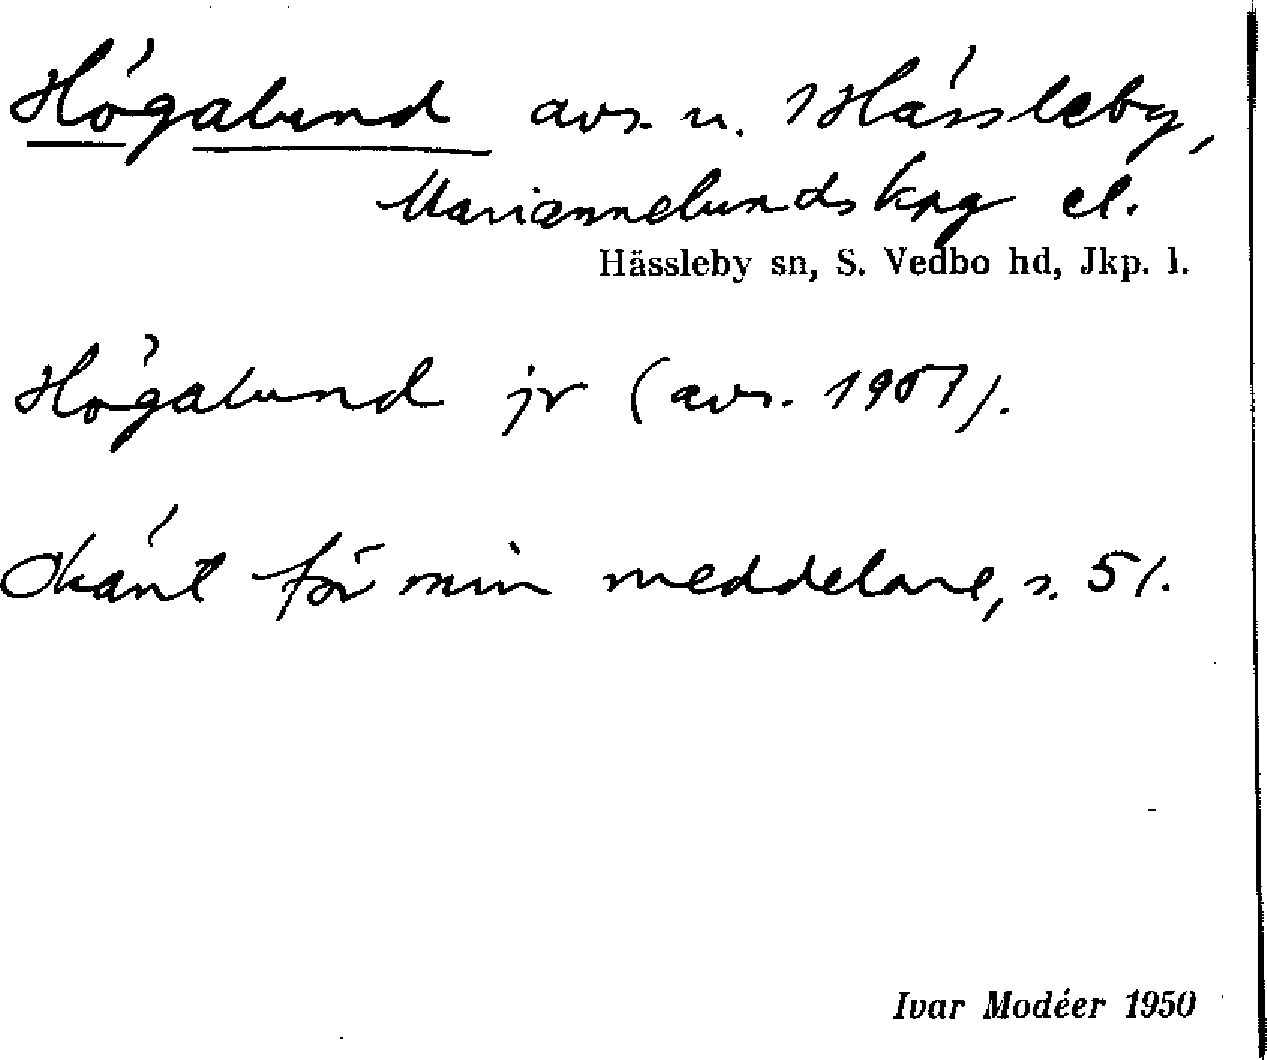 Högalund avs. u. 1 Hässleby,
Mariannelunds kpg el.
Hässleby sn, S. Vedbo hd, Jkp. l.
Högalund jr (avs. 1907).
Okänt för min meddelare, s. 51.
Ivar Modéer 1950